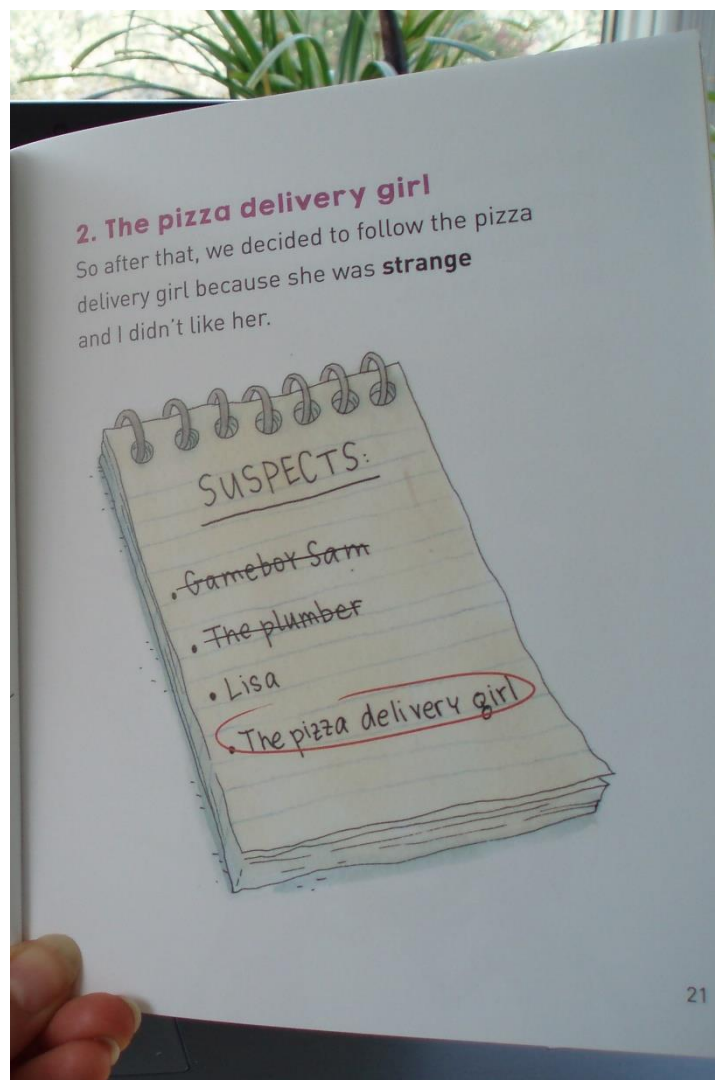 2. The pizza delivery girl
So after that, we decided to follow the pizza
delivery girl because she was strange
and I didn't like her.
SUSPECTS:
• Gameboy Sam
• The plumber
• Lisa
• The pizza delivery girl
21